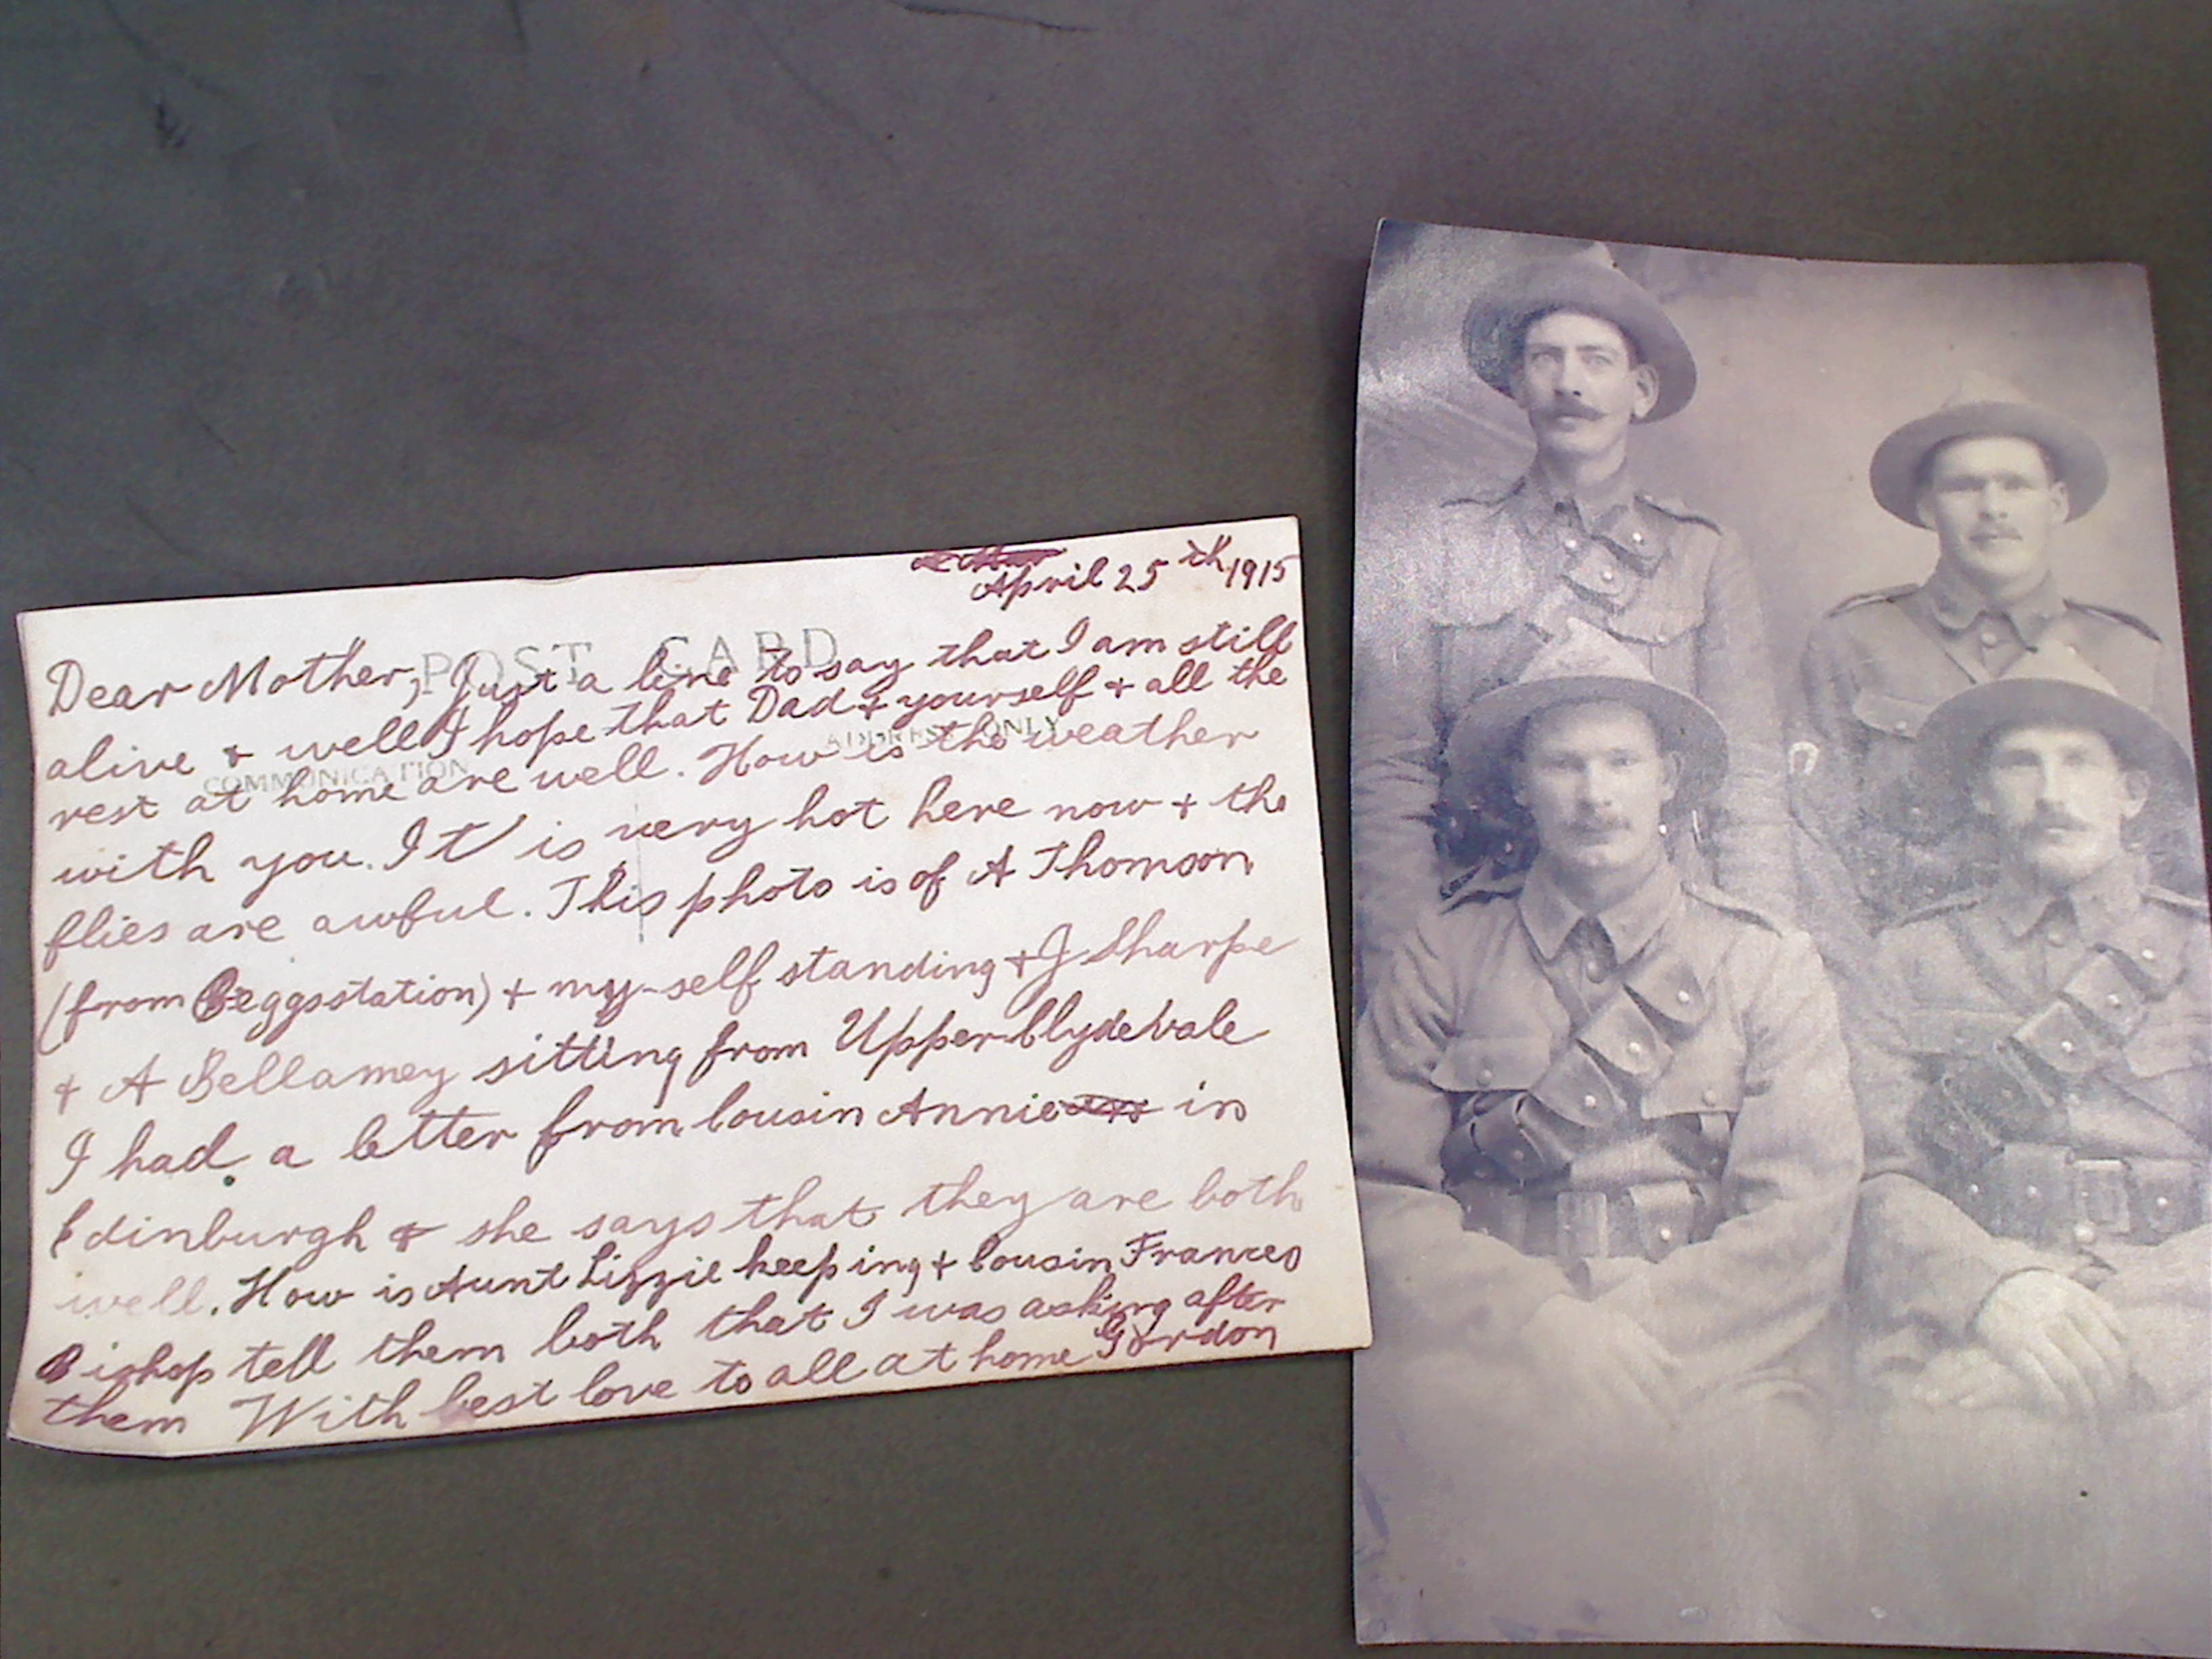 April 25th 1915
POST CARD
Dear Mother, Just a line to say that I am still
alive + well I hope that Dad + yourself + all the
ADDRESS ONLY
COMMUNICATION
rest at home are well. How is the weather
with you. It is very hot here now + the
flies are awful. This photo is of A Thomson
(from Beggsstation) + my-self standing + J Sharpe
+ A Bellamey sitting from Upper Clydevale
I had a letter from Cousin Annie in
Edinburgh + she says that they are both
well. How is Aunt Lizzie keeping + Cousin Frances
Bishop tell them both that I was asking after
them With best love to all at home Gordon